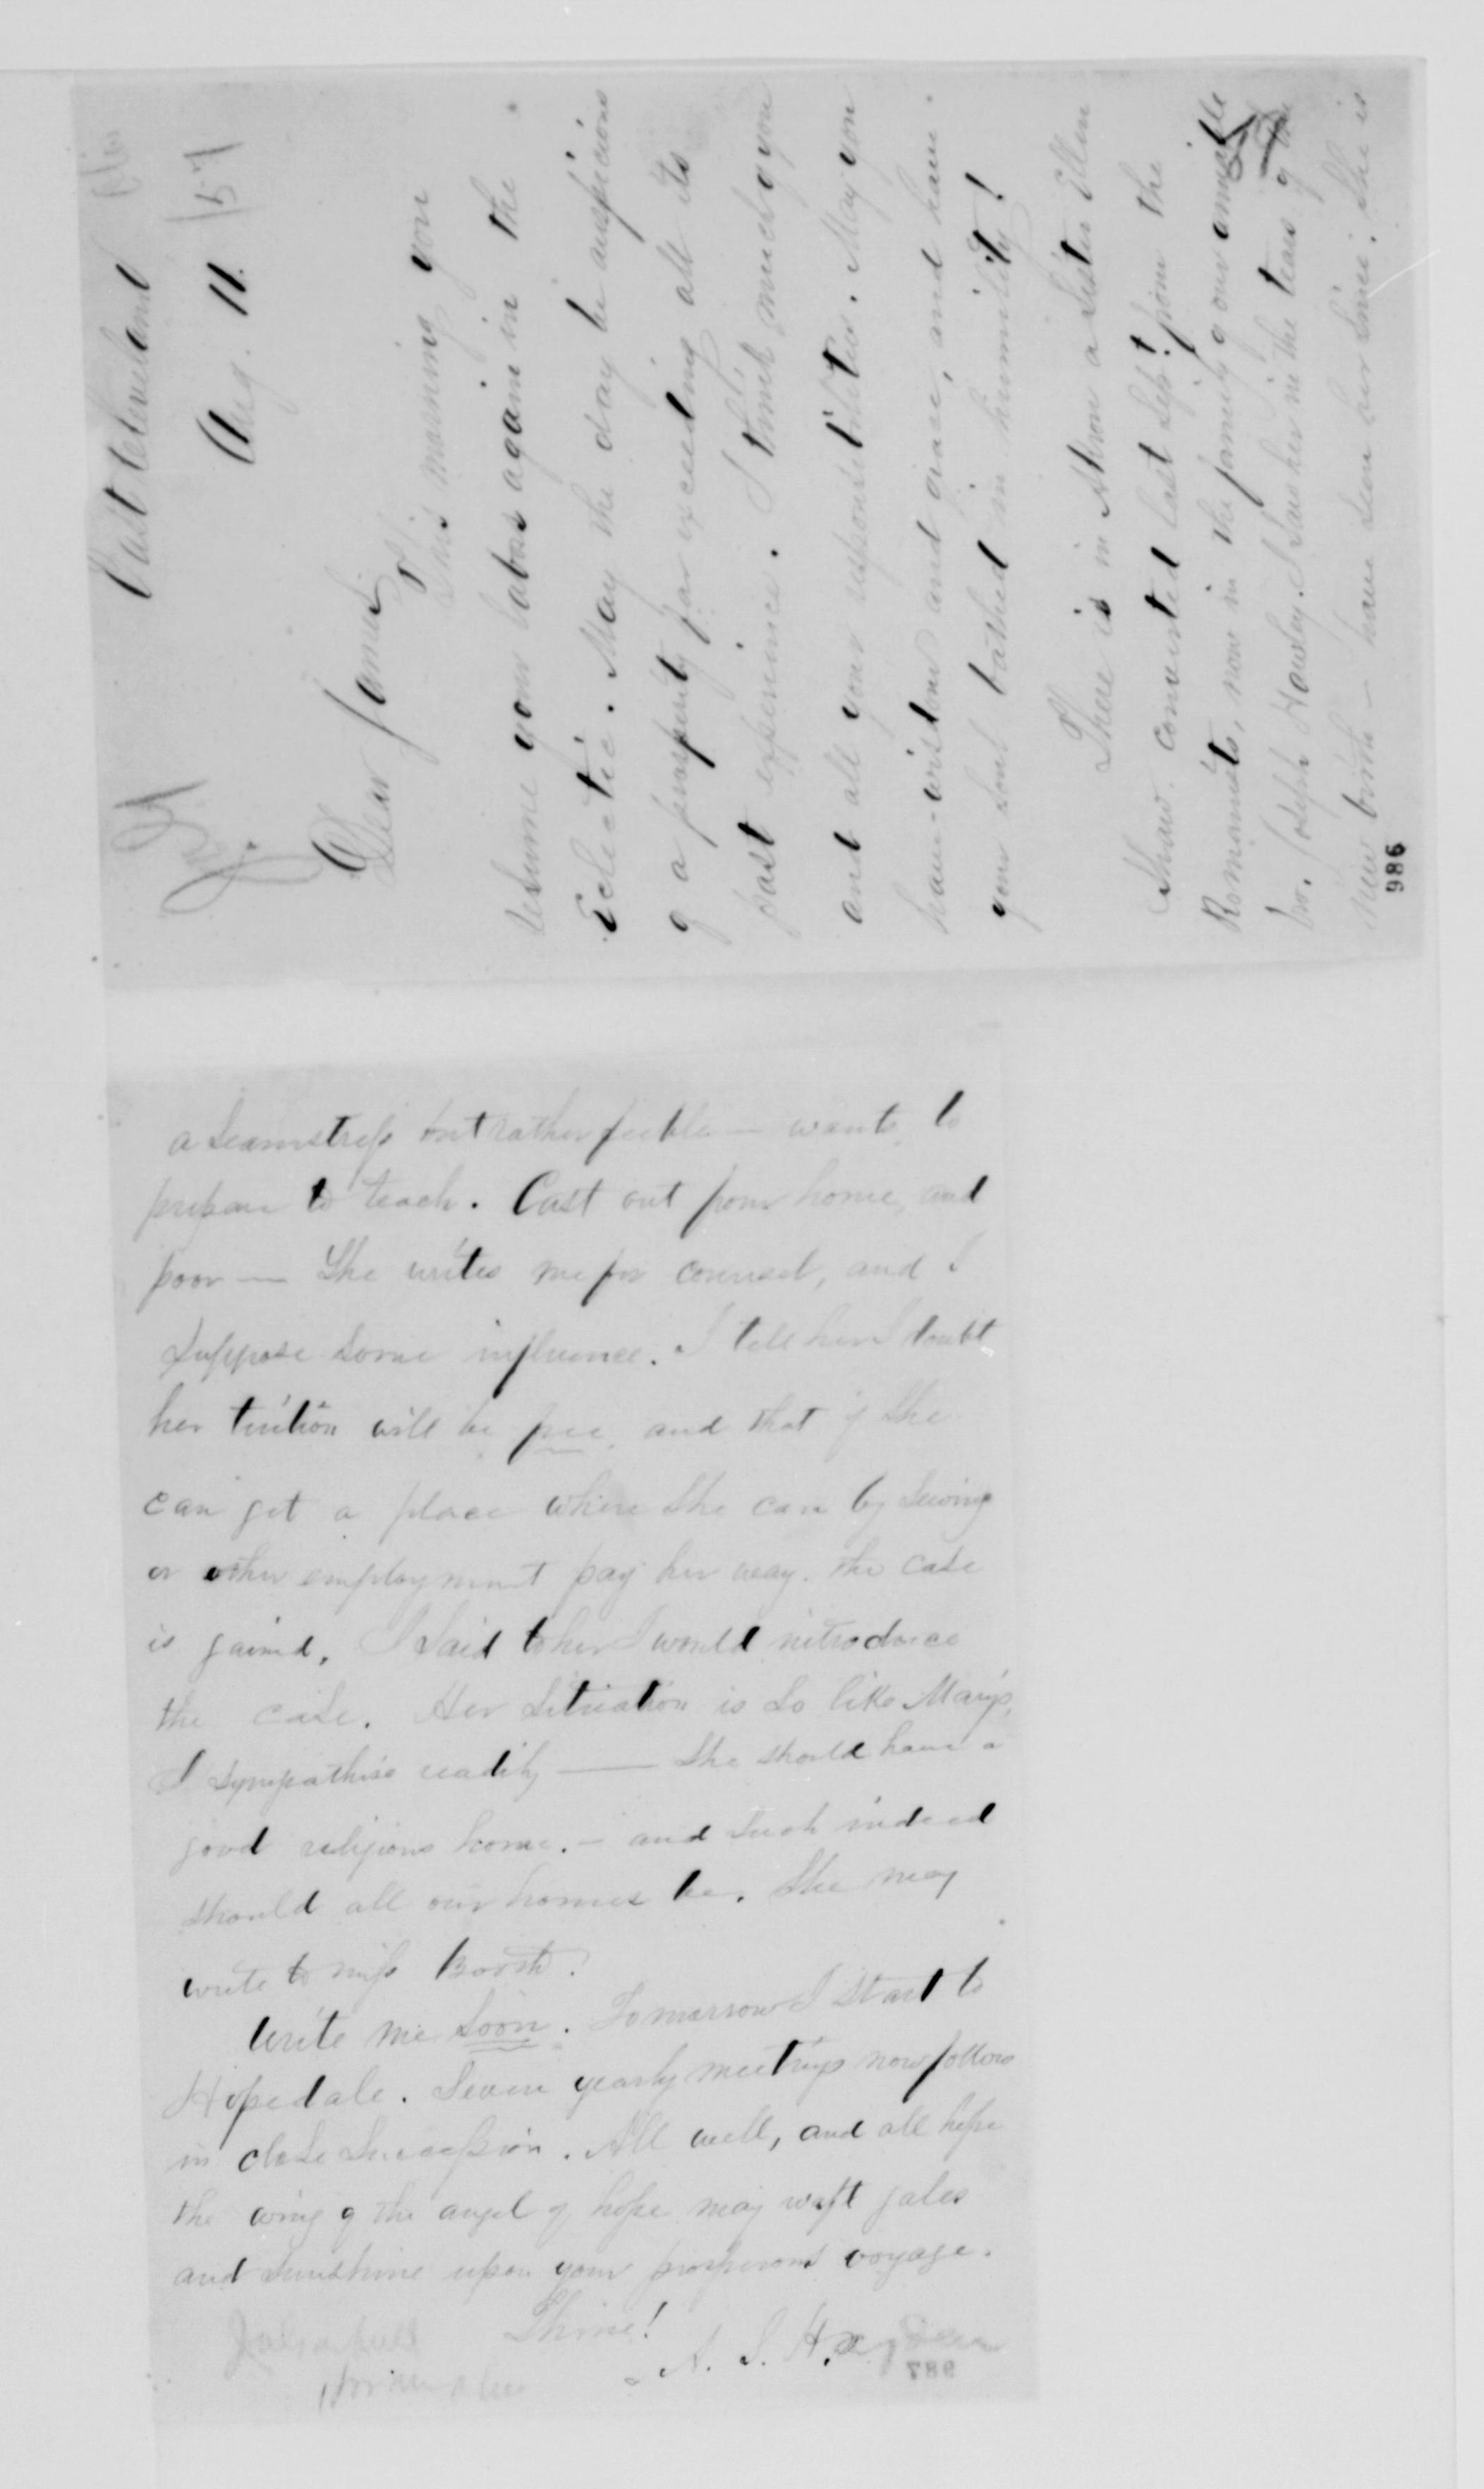 East Cleveland
Aug. 11. 157
Dear James,
This morning you
resume your labors again in the
Eclectic. May the day be auspicious
of a prosperity far exceeding all its
past experience. I think much of you
and all your responsibilities. May you
have wisdom and grace, and have
your soul bathed in humility!
There is in Akron a Sister Ellen
Shaw converted last Sept. from the
Romanists, now in the family of our amiable
bro. Joseph Hawley. I saw her in the tears of the
new birth — have seen her since. She is
986
a seamstress but rather feeble — wants to
prepare to teach. Cast out from home, and
poor — She writes me for counsel, and I
suppose some influence. I tell her I doubt
her tuition will be free, and that if she
can get a place where she can by sewing
or other employment pay her way, the case
is gained. I said to her I would introduce
the case. Her situation is so like Mary's,
I sympathise readily — She should have a
good religious home. — and such indeed
should all our homes be. She may
write to miss Booth.
Write me soon. Tomorrow I start to
Hopedale. Seven yearly meetings now follow
in close succession. All well, and all hope
the wing of the angel of hope may waft gales
and sunshine upon your prosperous voyage.
Thine!
A. S. Hayden
987